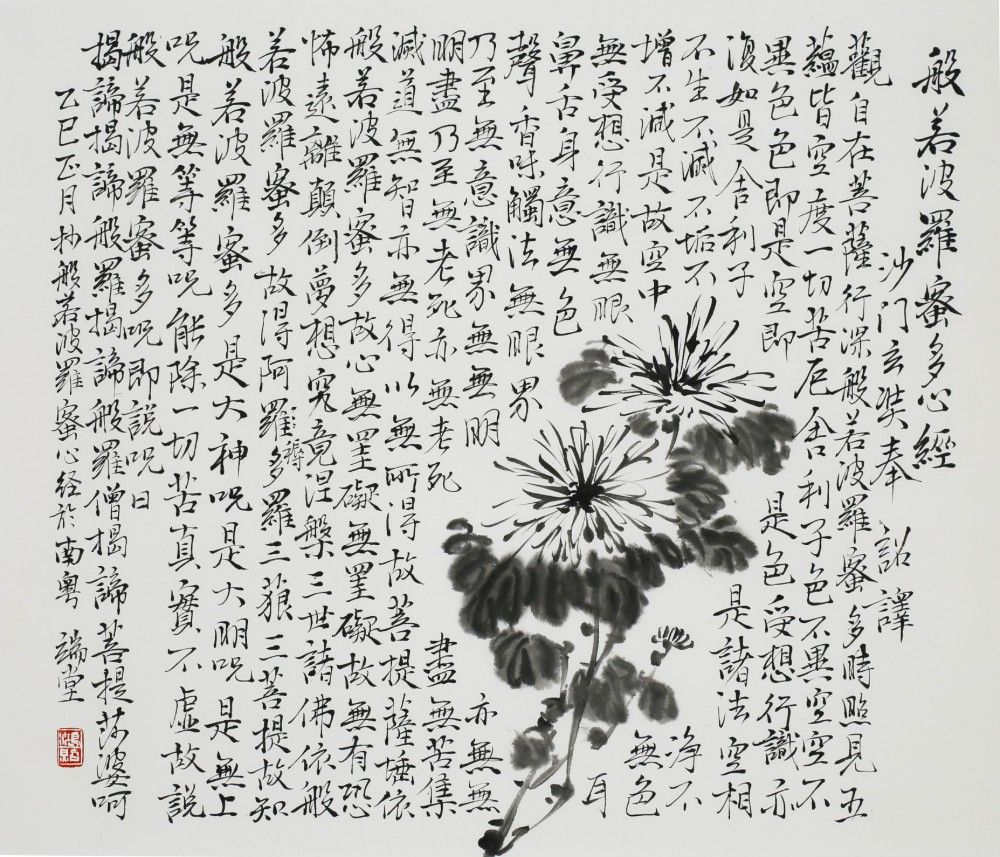 般若波羅蜜多心經
沙门玄奘奉 詔譯
觀自在菩薩行深般若波羅蜜多時照見五
蘊皆空度一切苦厄舍利子色不異空空不
異色色即是空即 是色受想行識亦
復如是舍利子 是諸法空相
不生不滅不垢不 净不
增不減是故空中 無色
無受想行識無眼 耳
鼻舌身意無色
聲香味觸法無眼界
乃至無意識界無無明 亦無無
明盡乃至無老死亦無老死 盡無苦集
滅道無智亦無得以無所得故菩提薩埵依
般若波羅蜜多故心無罣礙無罣礙故無有恐
怖遠離顛倒夢想究竟涅槃三世諸佛依般
若波羅蜜多故得阿羅耨多羅三藐三菩提故知
般若波羅蜜多是大神呪是大明呪是無上
呪是無等等呪能除一切苦真實不虛故說
般若波羅蜜多呪即說呪曰
揭諦揭諦般羅揭諦般羅僧揭諦菩提莎婆呵
乙巳正月抄般若波羅蜜心经於南粤 端堂